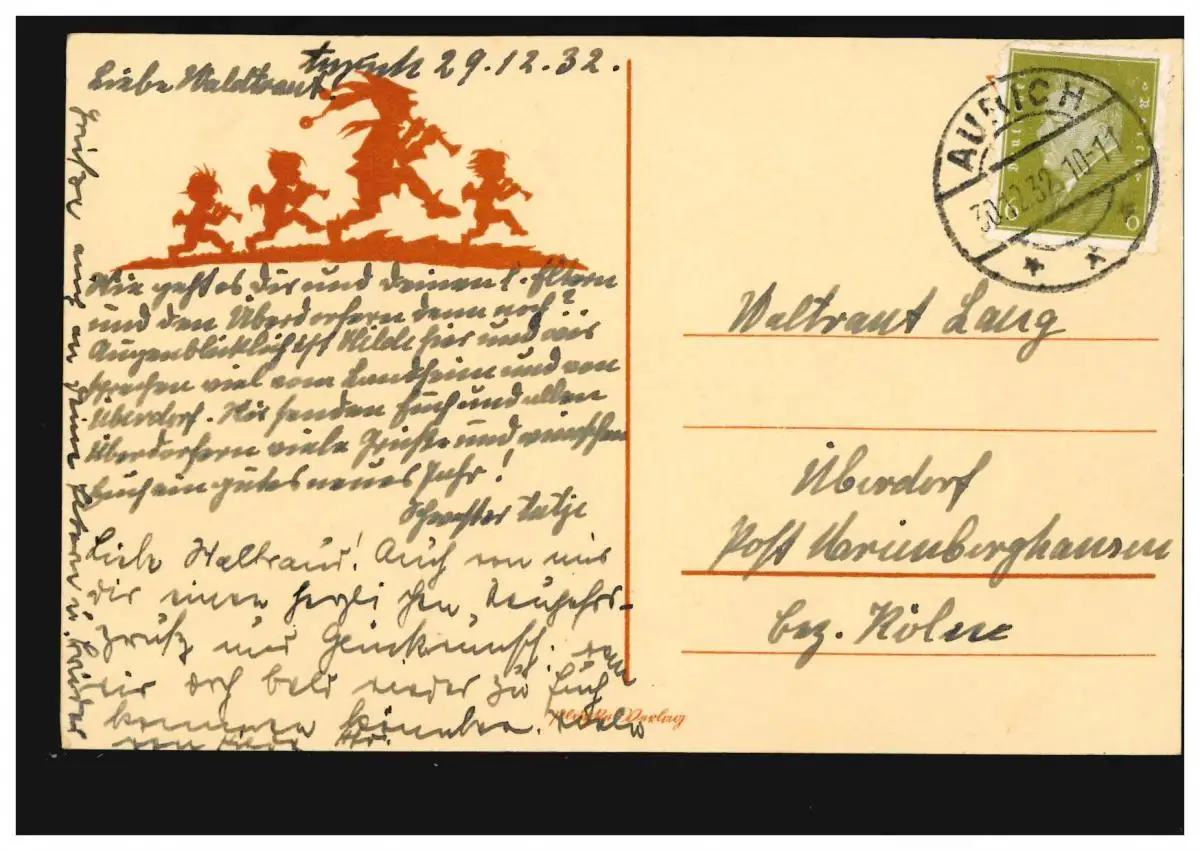 Aurich 29.12.32.
Liebe Waldtraut.
Wie geht es Dir und Deinen l. Eltern
und den Überdorfern denn noch?
Augenblicklich ist Hilde hier und wir
sprechen viel vom Landheim und von
Überdorf. Wir senden Euch und allen
Überdorfern viele Grüße und wünschen
Euch ein gutes neues Jahr!
Schwester Tatje
Liebe Waltraud! Auch von mir
Dir einen herzlichen Neujahrs-
gruß und Glückwunsch.
wir doch bald wieder zu Euch
kommen könnten.
Grüße auch an Deine Eltern u. Brüder
Verlag
AURICH
30.12.32.10-11
6
Waltraut Lang
Überdorf
Post Marienberghausen
bez. Köln